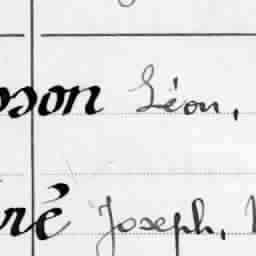 son Léon,
ré Joseph,